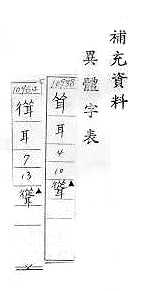 補充資料
異體字表
耸
耳
4
10
聳▲
耳
7
13
聳▲